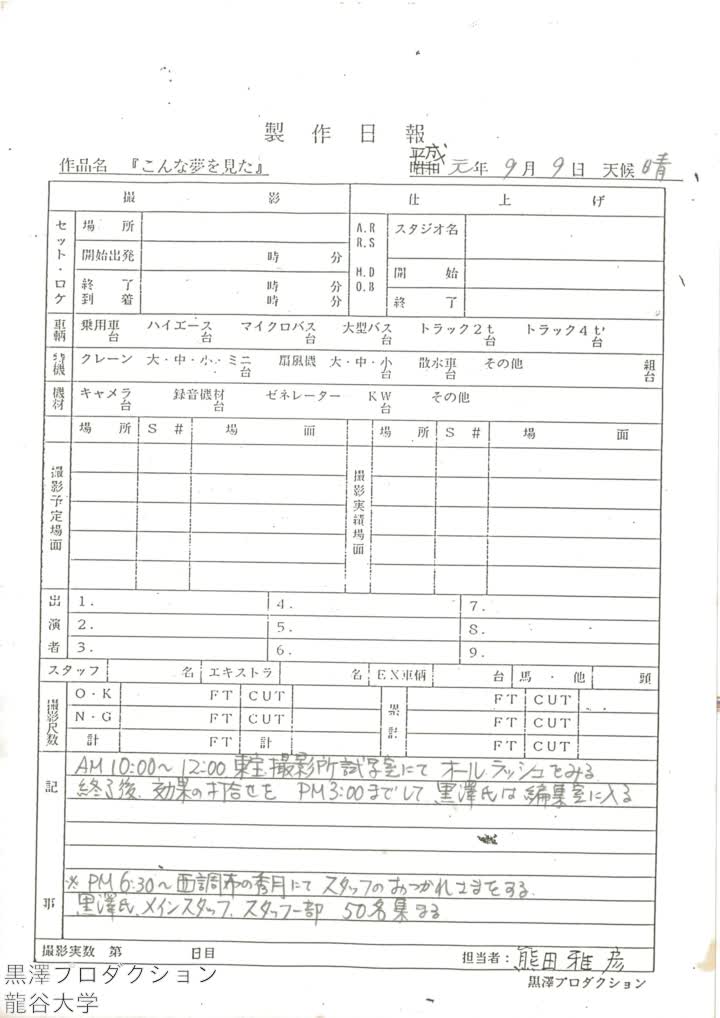 製作日報
作品名 『こんな夢を見た』 昭和 平成 元年 9月 9日 天候 晴
撮影 仕上げ
セット・ロケ 場所 A.R R.S M.D スタジオ名
開始出発 時 分
終了 時 分 開始
到着 時 分 終了
車輌 乗用車 台 ハイエース 台 マイクロバス 台 大型バス 台 トラック2t 台 トラック4t 台
特機 クレーン 大・中・小・ミニ 台 扇風機 大・中・小 台 散水車 台 その他 組 台
機材 キャメラ 台 録音機材 台 ゼネレーター KW 台 その他
場所 S# 場面 場所 S# 場面
撮影予定場面 撮影実績場面
出演者 1. 4. 7.
2. 5. 8.
3. 6. 9.
スタッフ 名 エキストラ 名 EX車輌 台 馬・他 頭
撮影尺数 O・K FT CUT 累計 FT CUT
N・G FT CUT FT CUT
計 FT 計 FT CUT
記
AM 10:00～12:00 東宝撮影所試写室にて オールラッシュをみる
終了後、効果の打合せを PM3:00までして 黒澤氏は編集室に入る
※ PM 6:30～西調布の秀月にて スタッフのおつかれさまをする.
黒澤氏、メインスタッフ、スタッフ一部 50名集まる
撮影実数 第 日目 担当者: 熊田雅彦
黒澤プロダクション
黒澤プロダクション
龍谷大学